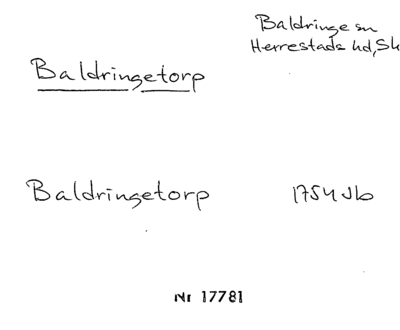 Baldringe sn
Herrestads hd, Sk
Baldringetorp
Baldringetorp 1754 Jb
Nr 17781